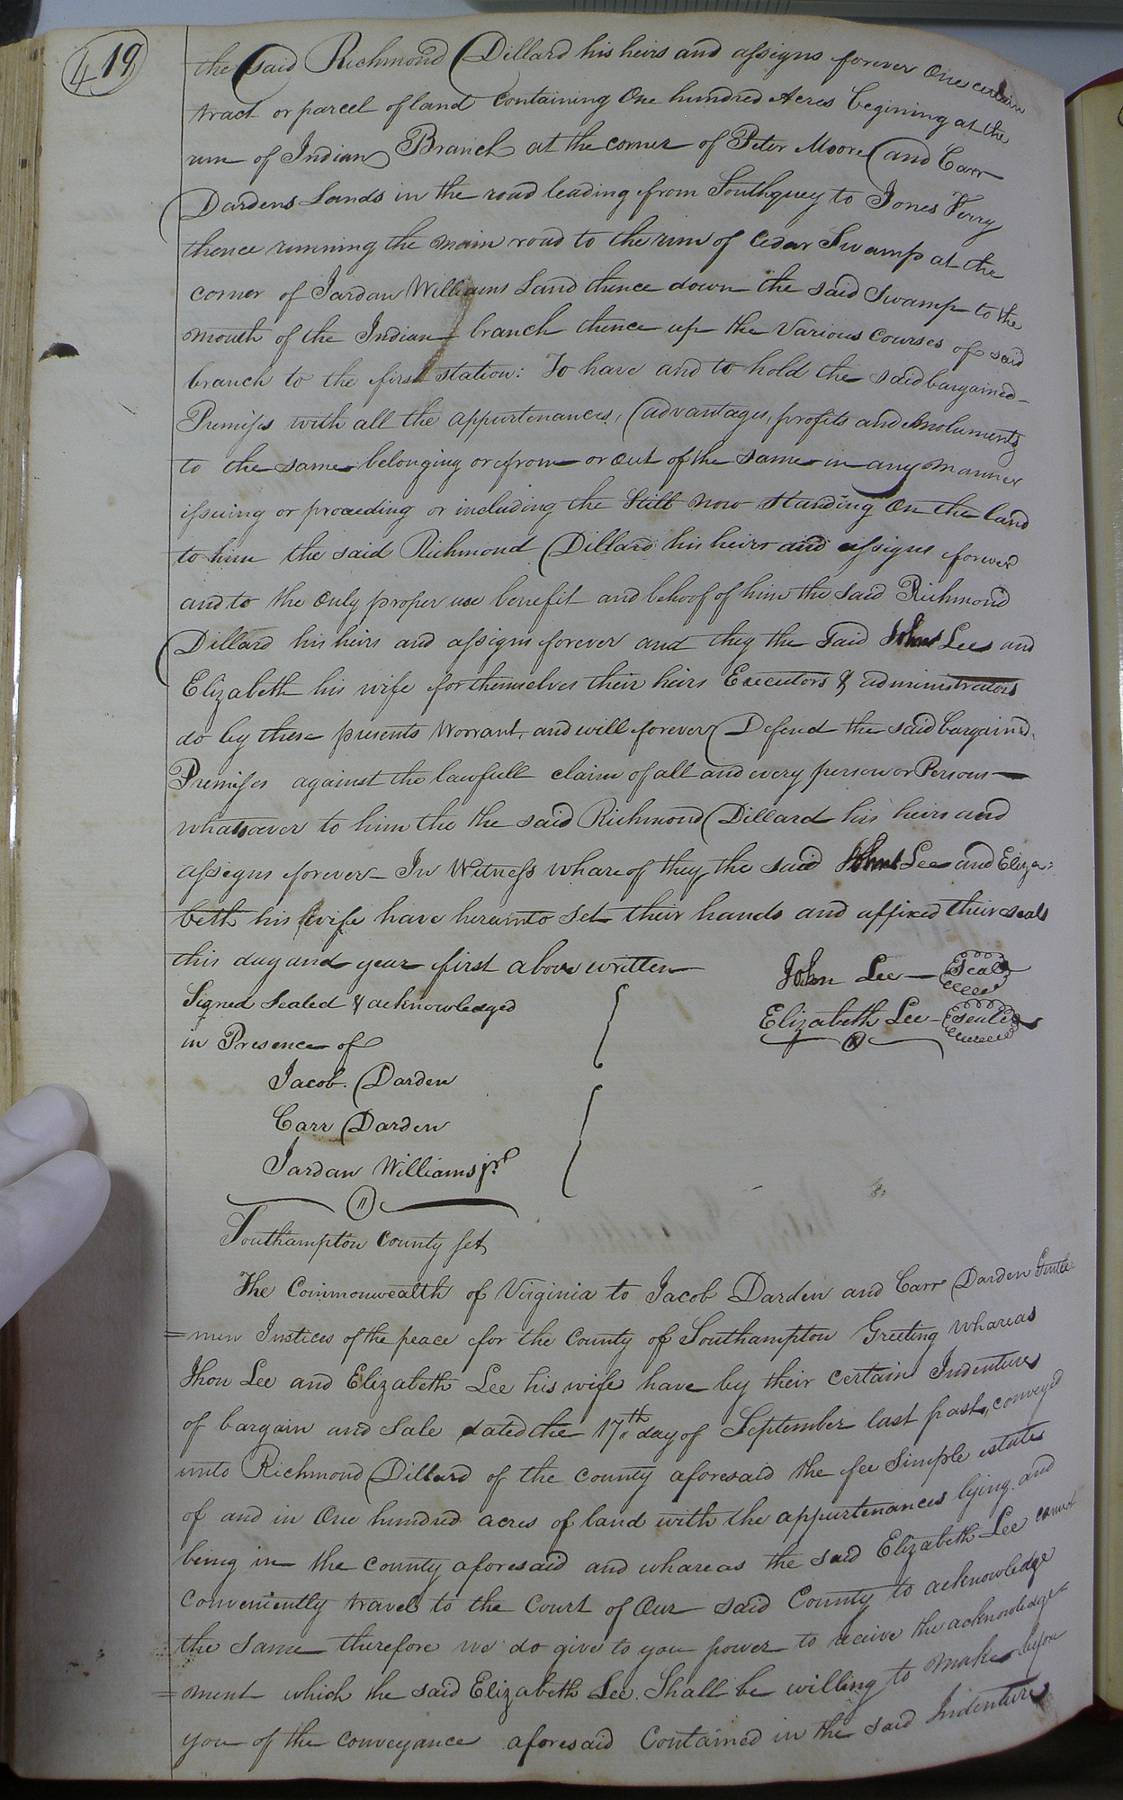 419
the said Richmond Dillard his heirs and assigns forever One certain
tract or parcel of land Containing One hundred Acres begining at the
run of Indian Branch at the corner of Peter Moore and Carr
Dardens Lands in the road leading from Southquey to Jones Ferry
thence running the main road to the run of Cedar Swamp at the
corner of Jardan Williams Land thence down the said Swamp to the
mouth of the Indian branch thence up the Various Courses of said
branch to the first station: To have and to hold the said bargained
Premises with all the appurtenances, advantages, profits and Emoluments
to the same belonging or from or out of the same in any manner
issuing or proceding or including the Still now Standing On the land
to him the said Richmond Dillard his heirs and assigns forever
and to the Only proper use benefit and behoof of him the said Richmond
Dillard his heirs and assigns forever and they the said John Lee and
Elizabeth his wife for themselves their heirs Executors & administrators
do by these presents Worrant, and will forever Defend the said bargained
Premises against the lawfull claim of all and every person or Persons
whatsoever to him the the said Richmond Dillard his heirs and
assigns forever In Witness whareof they the said John Lee and Eliza=
beth his wife have hereunto Set their hands and affixed their seals
this day and year first above written
John Lee Seal
Elizabeth Lee Seal
Signed Sealed & acknowledged
in Presence of
Jacob. Darden
Carr Darden
Jardan Williams jr.
11
Southampton County Set
The Commonwealth of Virginia to Jacob Darden and Carr Darden Gentle
=men Justices of the peace for the County of Southampton Greeting whareas
Jhon Lee and Elizabeth Lee his wife have by their certain Indenture
of bargain and Sale dated the 17th day of September last past, conveyed
unto Richmond Dillard of the County aforesaid the fee Simple estate
of and in One hundred acres of land with the appurtenances lying and
being in the County aforesaid and whareas the said Elizabeth Lee cannot
Conveniently travel to the Court of Our said County to acknowledge
the Same therefore we do give to you power to receive the acknowledge
=ment which the said Elizabeth Lee. Shall be willing to make before
you of the conveyance aforesaid Contained in the said Indenture